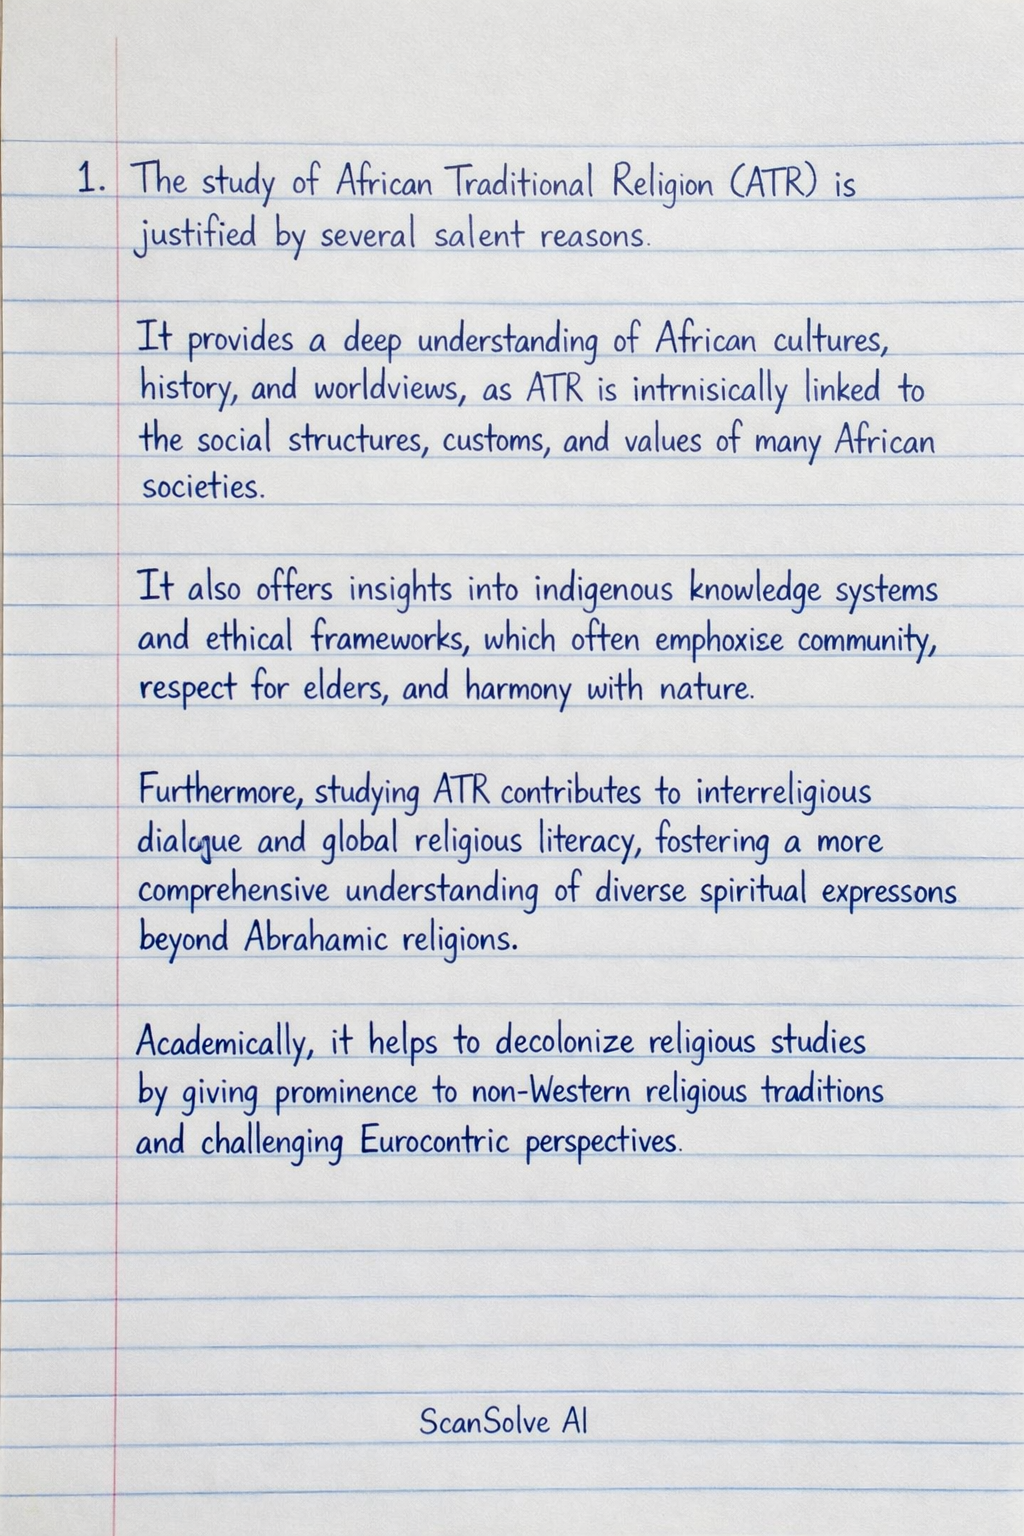 1. The study of African Traditional Religion (ATR) is
justified by several salent reasons.
It provides a deep understanding of African cultures,
history, and worldviews, as ATR is intrnisically linked to
the social structures, customs, and values of many African
societies.
It also offers insights into indigenous knowledge systems
and ethical frameworks, which often emphoxise community,
respect for elders, and harmony with nature.
Furthermore, studying ATR contributes to interreligious
dialogue and global religious literacy, fostering a more
comprehensive understanding of diverse spiritual expressons
beyond Abrahamic religions.
Academically, it helps to decolonize religious studies
by giving prominence to non-Western religious traditions
and challenging Eurocontric perspectives.
ScanSolve AI